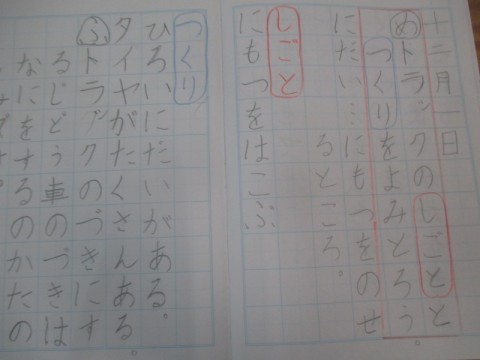 十二月一日
めトラックのしごとと
つくりをよみとろう
にだい…にもつをのせ
るところ。
しごと
にもつをはこぶ
つくり
ひろいにだいがある。
タイヤがたくさんある。
ふトラックのづきにす
るじどう車のづきは
なにをするのかたの